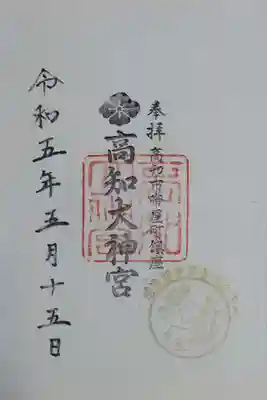 奉拝 高知市帯屋町鎮座
高知大神宮
令和五年五月十五日